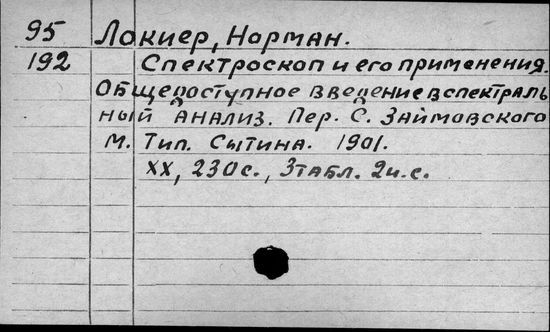 95 Локиер, Норман.
192 Спектроскоп и его применения.
Общедоступное введение в спектраль
ный анализ. Пер. С. Займовского
М. Тип. Сытина. 1901.
XX, 230 с., 3 табл. 2 и. с.